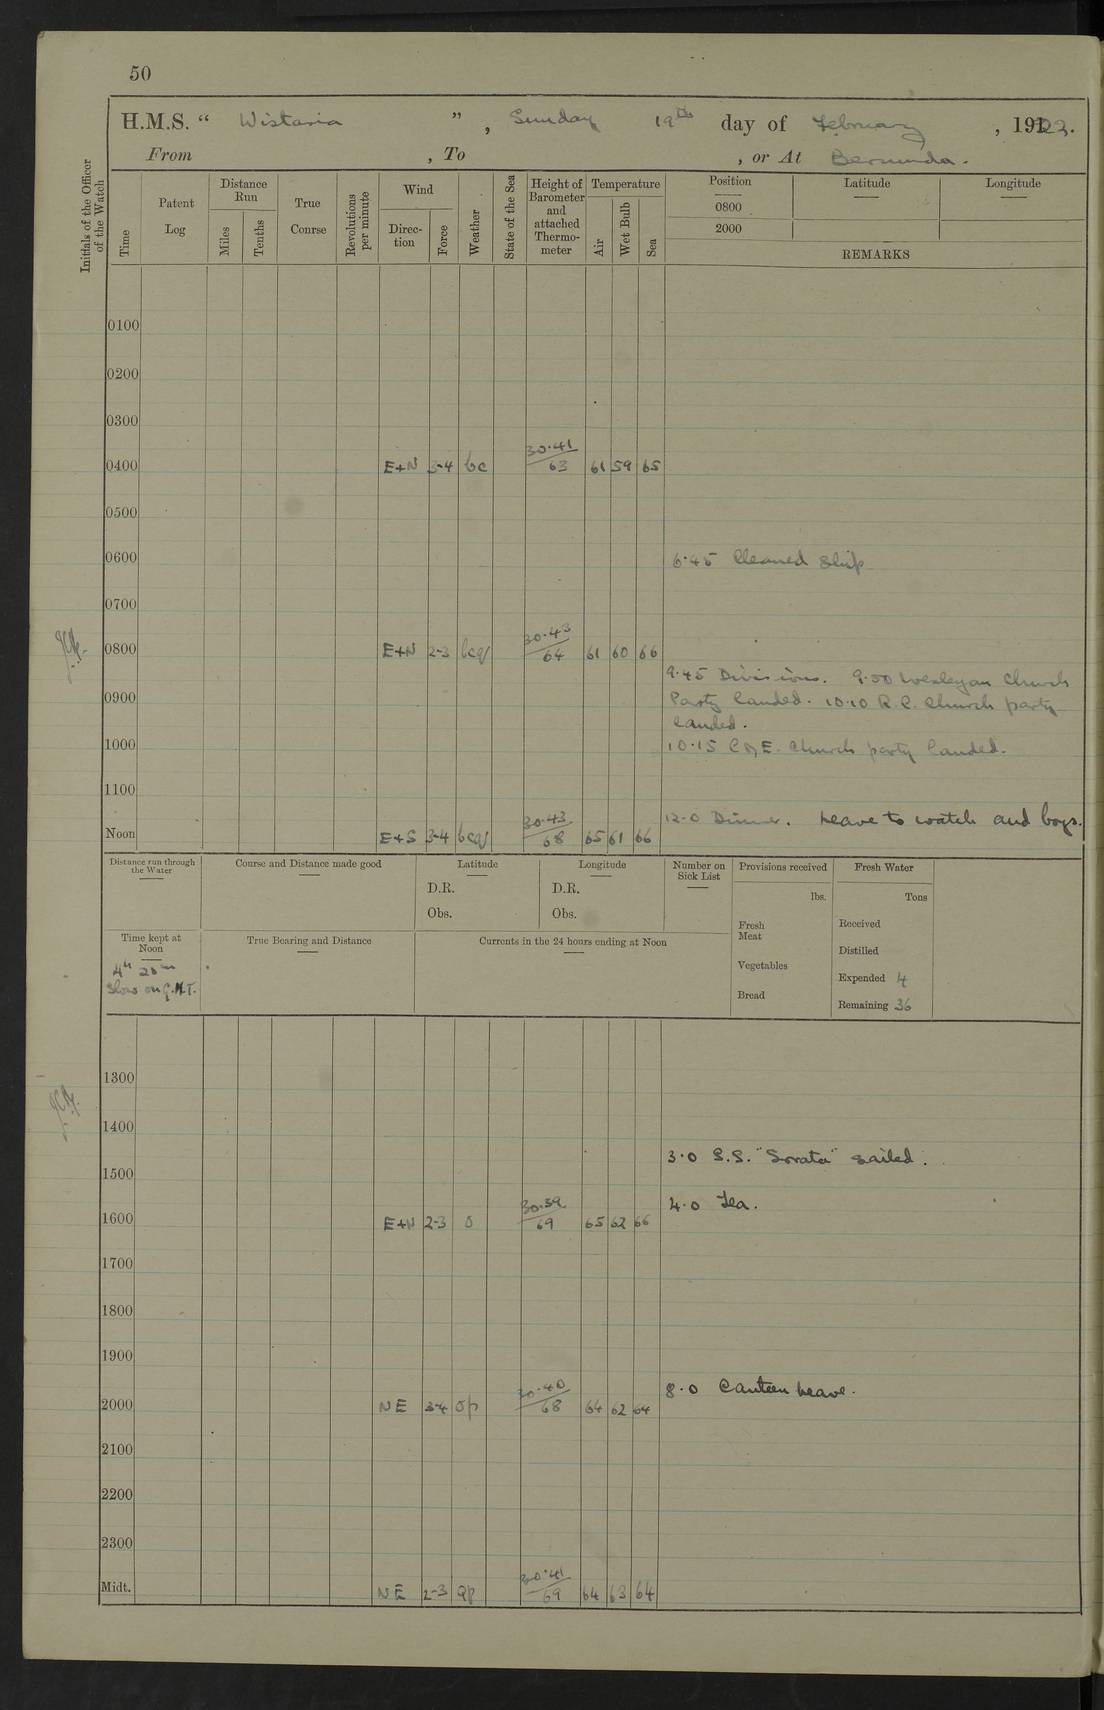 50
H.M.S. “ Wistaria ” , Sunday 19th day of February , 1922.
From , To , or At Bermuda.
Initials of the Officer of the Watch
Time
Patent Log
Distance Run
Miles
Tenths
True Course
Revolutions per minute
Wind
Direction
Force
Weather
State of the Sea
Height of Barometer and attached Thermometer
Temperature
Air
Wet Bulb
Sea
Position
0800
2000
Latitude
Longitude
REMARKS
0100
0200
0300
0400 E+N 3-4 bc 30.41/63 61 59 65
0500
0600 6.45 Cleaned ship
0700
0800 E+N 2-3 bcq 30.43/64 61 60 66
9.45 Divisions. 9.50 Wesleyan Church
0900 Party landed. 10.10 R.C. Church party
landed.
1000 10.15 C of E. Church party landed.
1100
12.0 Dinner. Leave to watch and boys.
Noon E+S 3-4 bcq 30.43/68 65 61 66
Distance run through the Water
Course and Distance made good
Latitude
D.R.
Obs.
Longitude
D.R.
Obs.
Number on Sick List
Provisions received
lbs.
Fresh Meat
Vegetables
Bread
Fresh Water
Tons
Received
Distilled
Expended 4
Remaining 36
Time kept at Noon
4h 20m
Slow on G.M.T.
True Bearing and Distance
Currents in the 24 hours ending at Noon
1300
1400
3.0 S.S. "Sorata" sailed.
1500
4.0 Tea.
1600 E+N 2-3 o 30.39/69 65 62 66
1700
1800
1900
8.0 Canteen Leave.
2000 NE 3-4 op 30.40/68 64 62 64
2100
2200
2300
Midt. NE 2-3 qp 30.41/69 64 63 64